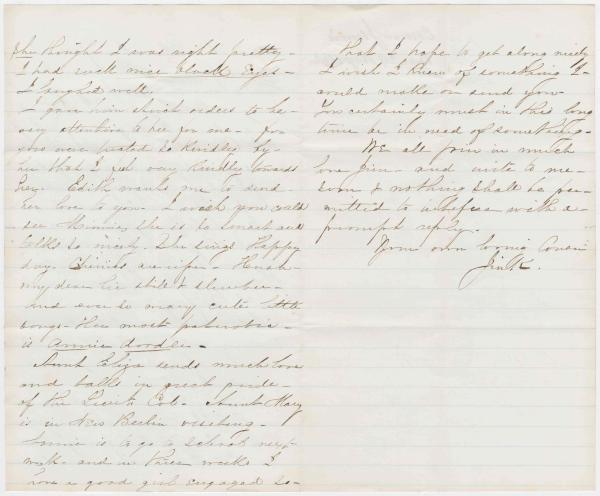 she thought I was right pretty -
I had such nice black eyes -
I laughed well.
I gave him strict orders to be
very attentive to her for me - for
you were treated so kindly by
her that I feel very kindly towards
her. Edith wants me to send
her love to you. I wish you could
see Minnie she is so smart and
talks so nicely. She sings Happy
day. - Hush
my dear lie still & slumber -
and ever so many cute little
songs - Her most
is Annie doodle -
Aunt Eliza sends much love
and talks in great pride -
of the Lieut Col - Aunt Mary
is in New Berlin visiting -
is to go to school next
week - and in three weeks I
have a good girl engaged so -
that I hope to get along nicely
I wish I knew of something I -
could make or send you -
You certainly must in this long
time be in need of something -
We all join in much
love Jim - and write to me -
soon & nothing shall be per-
mitted to interfere with a -
prompt reply.
Your own loving Cousin